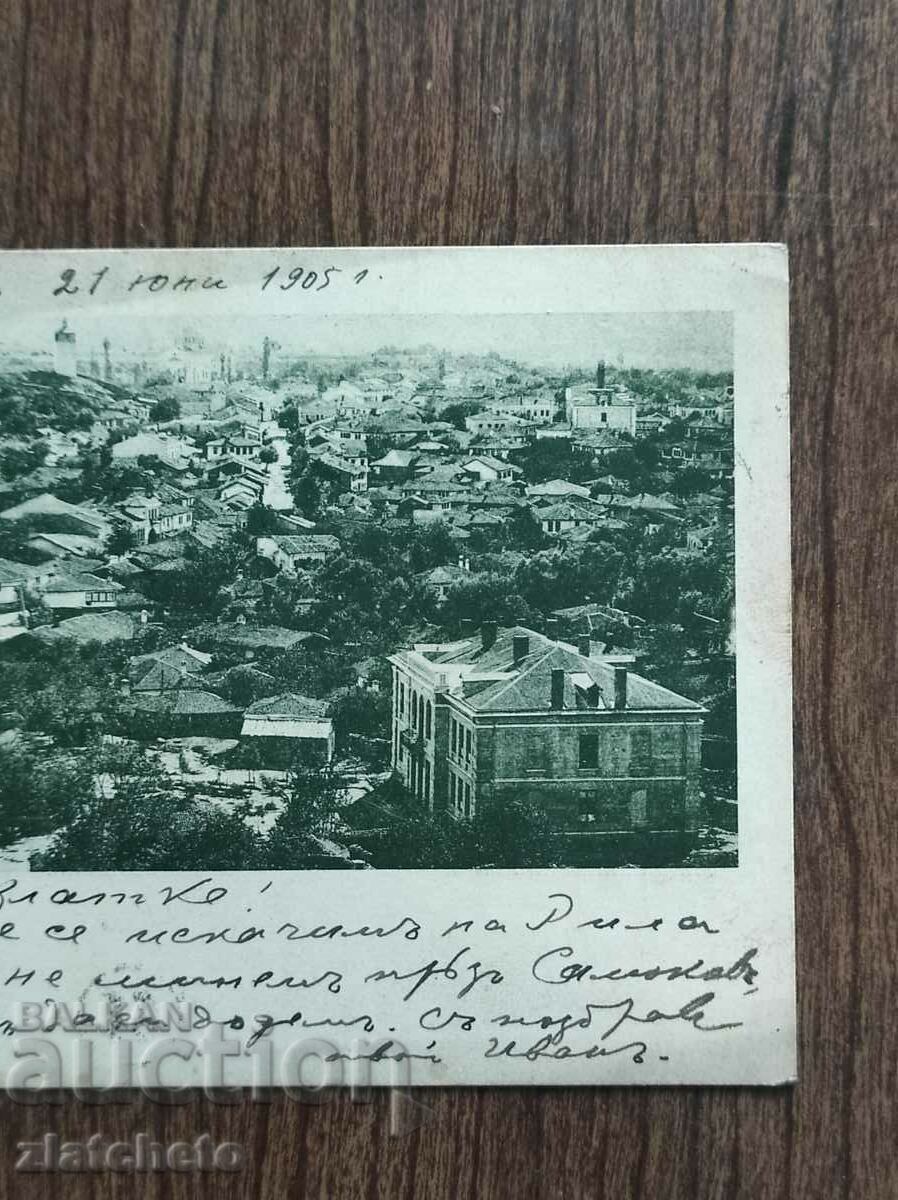 21 юни 1905 г.
Златке!
се искачимъ на Рила
не минемъ прѣзъ Самоковъ,
да додемъ. Съ поздрав
твой Иванъ.
BALKAN
auction
zlatcheto